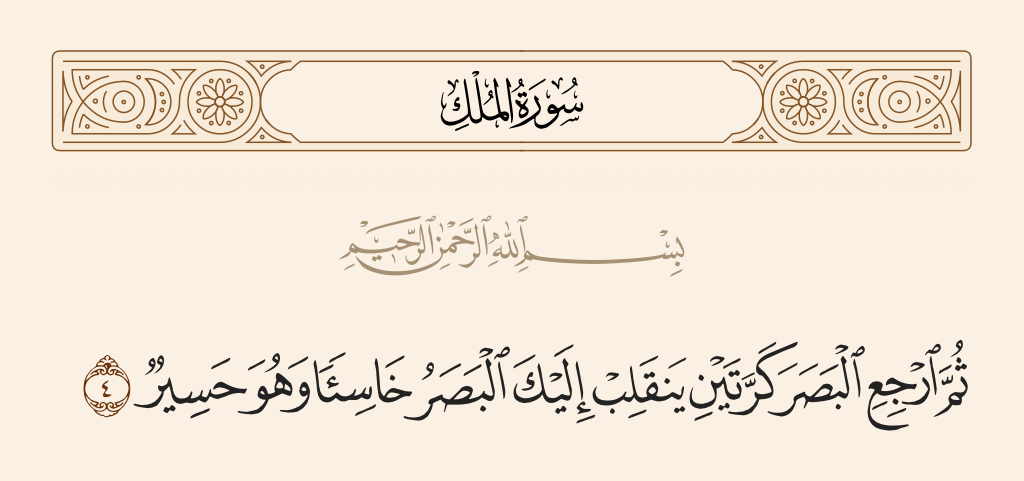 سُورَةُ الْمُلْكِ
بِسْمِ ٱللَّهِ ٱلرَّحْمَٰنِ ٱلرَّحِيمِ
ثُمَّ ٱرْجِعِ ٱلْبَصَرَ كَرَّتَيْنِ يَنقَلِبْ إِلَيْكَ ٱلْبَصَرُ خَاسِئًا وَهُوَ حَسِيرٌ ٤